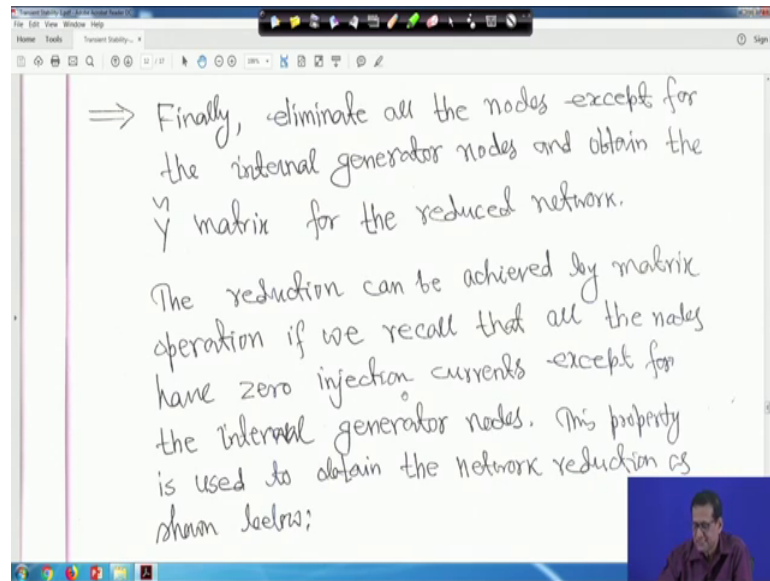 Transient Stability-1.pdf - Adobe Acrobat Reader DC
File Edit View Window Help
Home Tools Transient Stability-... × Sign
12 / 17
⇒ Finally, eliminate all the nodes except for
the internal generator nodes and obtain the
Ŷ matrix for the reduced network.
The reduction can be achieved by matrix
operation if we recall that all the nodes
have zero injection currents except for
the internal generator nodes. This property
is used to obtain the network reduction as
shown below: